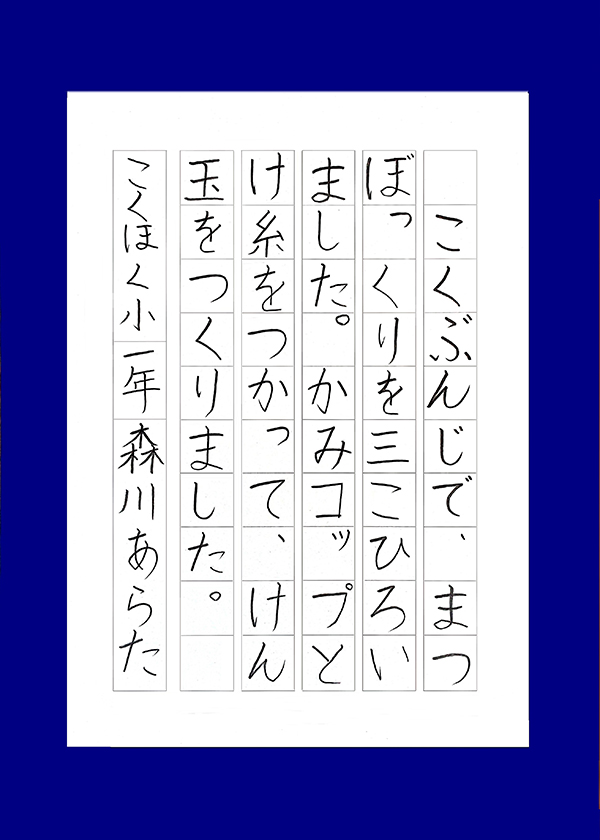 こくぶんじで、まつ
ぼっくりを三こひろい
ました。かみコップと
け糸をつかって、けん
玉をつくりました。
こくほく小一年森川あらた